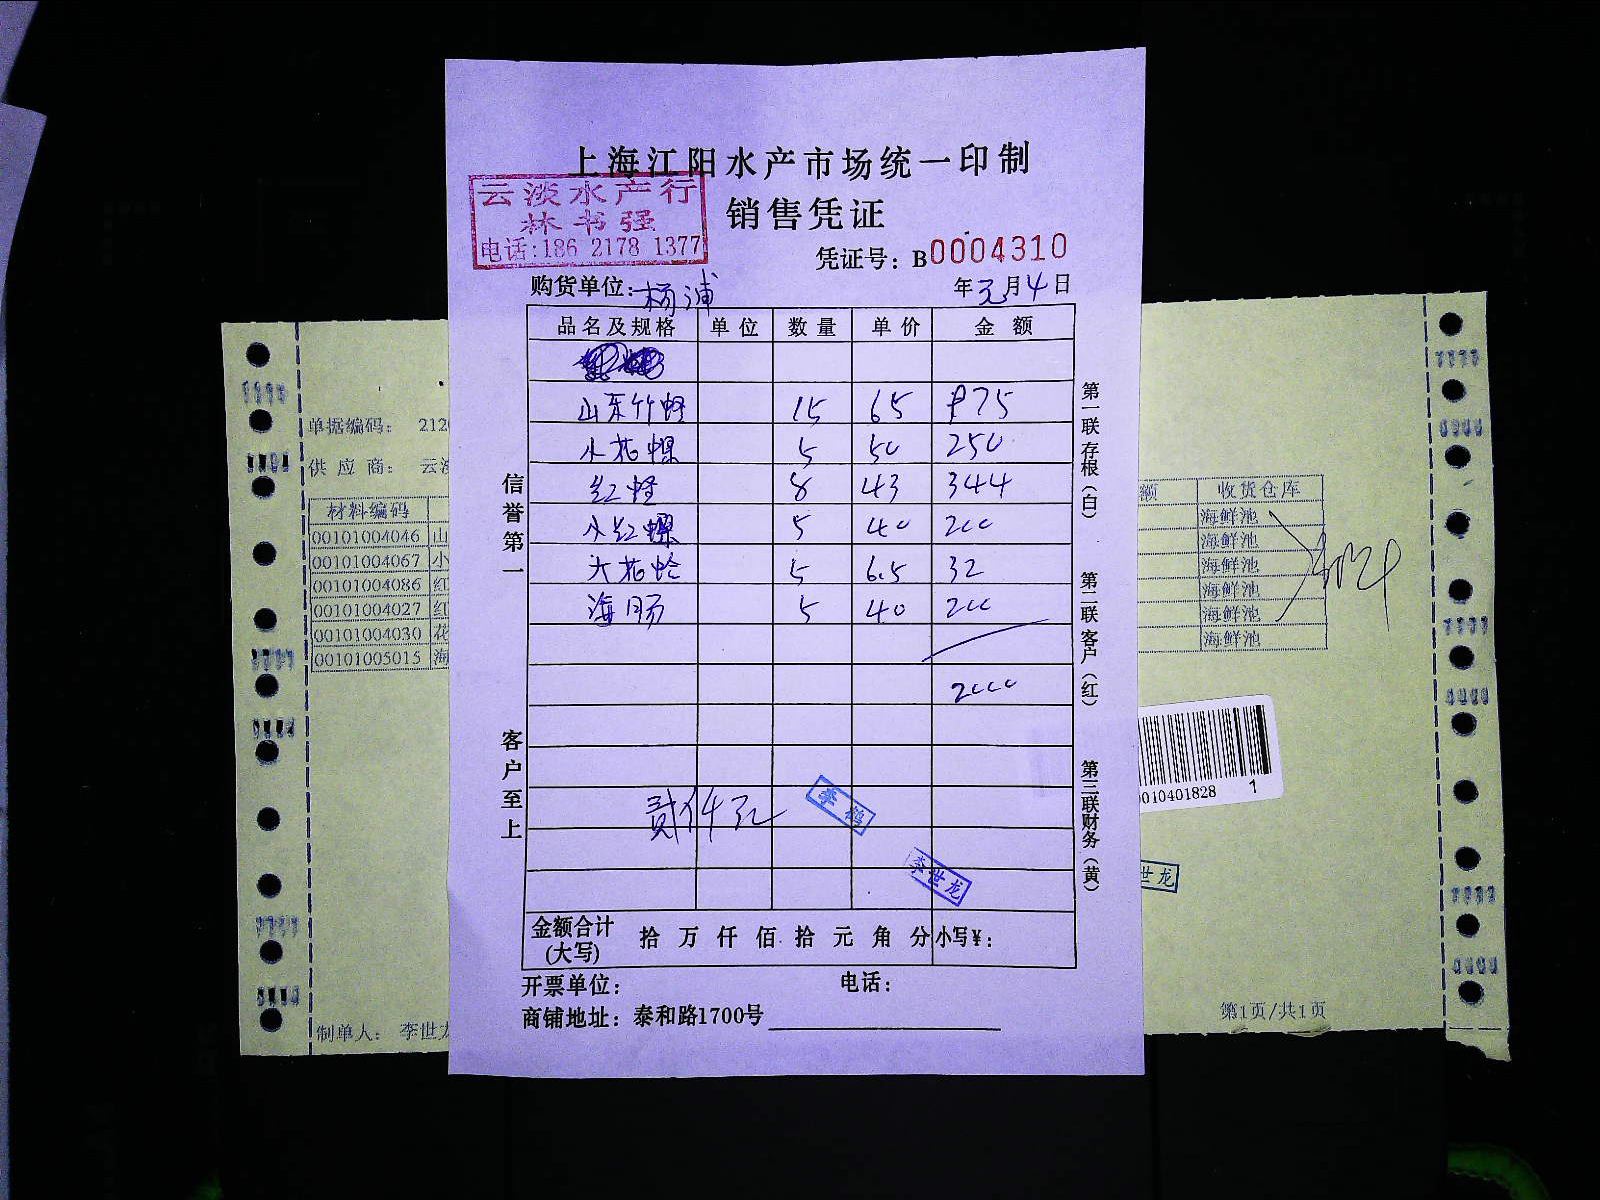 上海江阳水产市场统一印制
云淡水产行
林书强
电话:186 2178 1377
销售凭证
凭证号: B0004310
购货单位: 杨浦
年 元 月 4 日
品名及规格 单位 数量 单价 金额
山东竹蛏 15 65 975
小花螺 5 50 250
红蛏 8 43 344
小红螺 5 40 200
大花蛤 5 6.5 32
海肠 5 40 200
2000
贰仟元
李鹤
李世龙
金额合计(大写) 拾 万 仟 佰 拾 元 角 分 小写¥:
开票单位: 电话:
商铺地址: 泰和路1700号
信誉第一
客户至上
第一联存根(白)
第二联客户(红)
第三联财务(黄)
单据编码: 212
供应商: 云
材料编码
00101004046 山
00101004067 小
00101004086 红
00101004027 红
00101004030 花
00101005015 海
制单人: 李世龙
额 收货仓库
海鲜池
海鲜池
海鲜池
海鲜池
海鲜池
海鲜池
0010401828 1
世龙
第1页/共1页